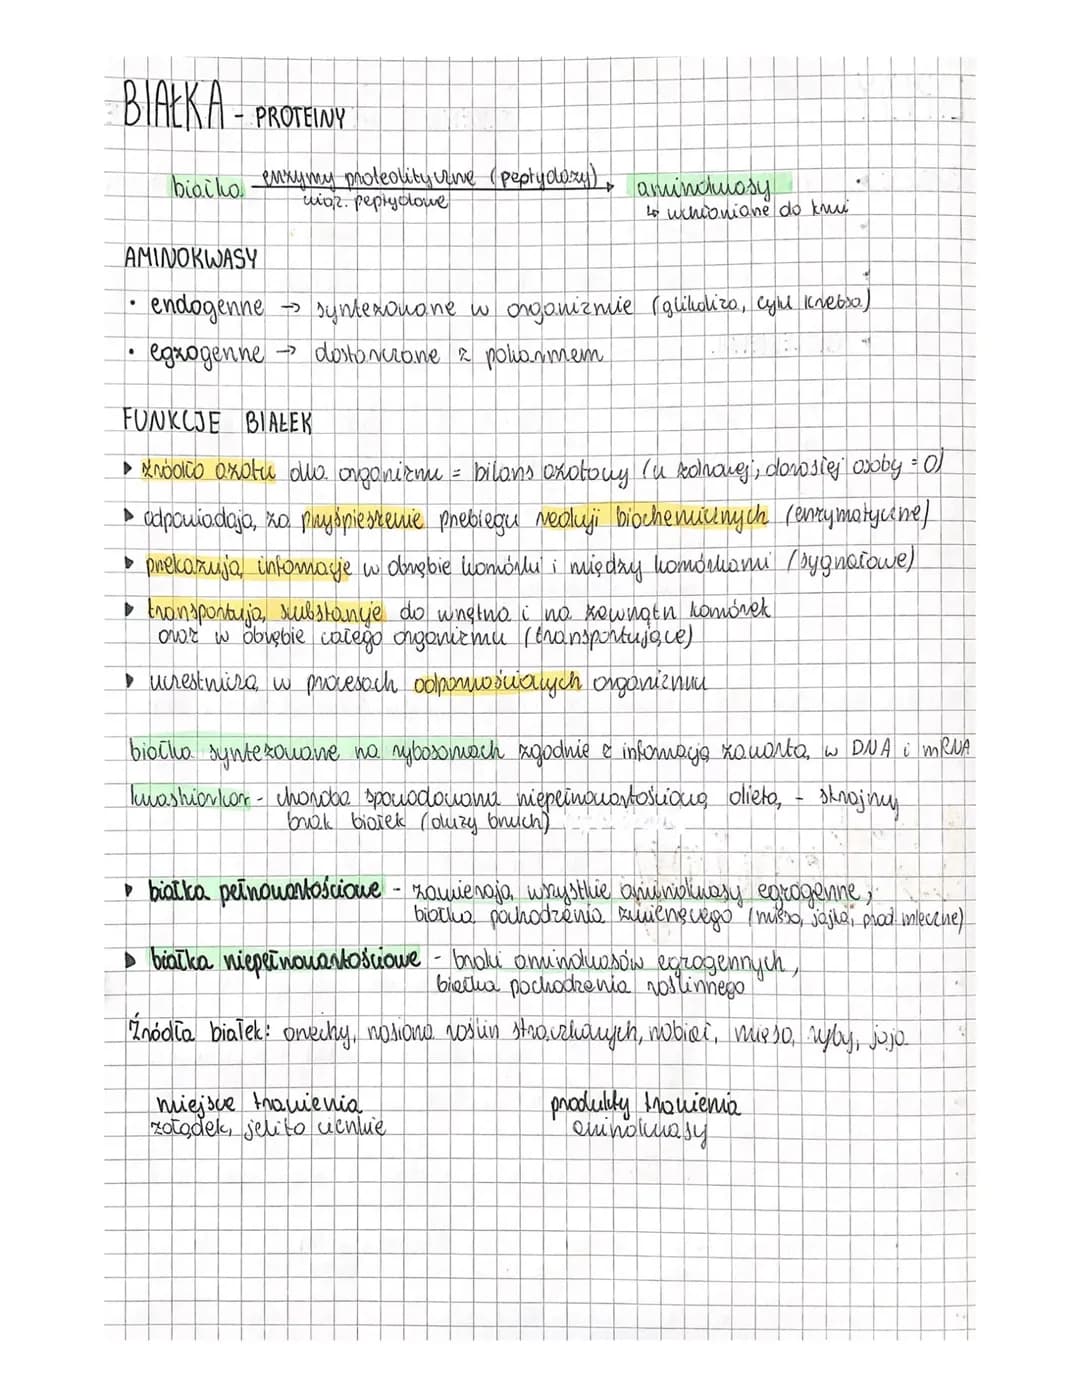 BIAŁKA - PROTEINY
białka enzymy proteolityczne (peptydazy) → aminokwasy
wiąz. peptydowe
↳ wchłaniane do krwi
AMINOKWASY
• endogenne → syntezowane w organizmie (glikoliza, cykl Krebsa)
• egzogenne → dostarczane z pokarmem
FUNKCJE BIAŁEK
▸ źródło azotu dla organizmu = bilans azotowy (u zdrowej, dorosłej osoby = 0)
▸ odpowiadają za przyśpieszenie przebiegu reakcji biochemicznych (enzymatyczne)
▸ przekazują informacje w obrębie komórki i między komórkami (sygnałowe)
▸ transportują substancje do wnętrza i na zewnątrz komórek
oraz w obrębie całego organizmu (transportujące)
▸ uczestniczą w procesach odpornościowych organizmu
białka syntezowane na rybosomach zgodnie z informacją zawartą w DNA i mRNA
kwashiorkor - choroba spowodowana niepełnowartościową dietą - skrajny
brak białek (duży brzuch)
▸ białka pełnowartościowe - zawierają wszystkie aminokwasy egzogenne,
białka pochodzenia zwierzęcego (mięso, jajka, prod. mleczne)
▸ białka niepełnowartościowe - braki aminokwasów egzogennych,
białka pochodzenia roślinnego
Źródła białek: orzechy, nasiona roślin strączkowych, nabiał, mięso, ryby, jaja
miejsce trawienia
żołądek, jelito cienkie
produkty trawienia
aminokwasy